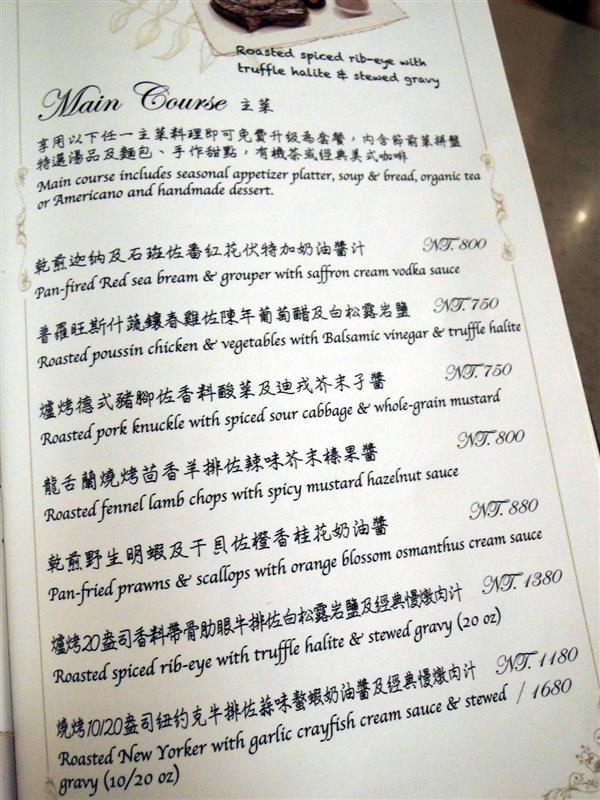 Roasted spiced rib-eye with
truffle halite & stewed gravy
Main Course 主菜
享用以下任一主菜料理即可免費升級為套餐，內含節前菜拼盤
特選湯品及麵包、手作甜點，有機茶或經典美式咖啡
Main course includes seasonal appetizer platter, soup & bread, organic tea
or Americano and handmade dessert.
乾煎迦纳及石班佐番红花伏特加奶油醬汁 NT. 800
Pan-fired Red sea bream & grouper with saffron cream vodka sauce
普羅旺斯什蔬鑲春雞佐陳年葡萄醋及白松露岩鹽 NT. 750
Roasted poussin chicken & vegetables with Balsamic vinegar & truffle halite
爐烤德式豬腳佐香料酸菜及迪戎芥末子醬 NT. 750
Roasted pork knuckle with spiced sour cabbage & whole-grain mustard
龍舌蘭燒烤茴香羊排佐辣味芥末榛果醬 NT. 800
Roasted fennel lamb chops with spicy mustard hazelnut sauce
乾煎野生明蝦及干貝佐橙香桂花奶油醬 NT. 880
Pan-fried prawns & scallops with orange blossom osmanthus cream sauce
爐烤20盎司香料帶骨肋眼牛排佐白松露岩鹽及經典慢燉肉汁 NT. 1380
Roasted spiced rib-eye with truffle halite & stewed gravy (20 oz)
燒烤10/20盎司纽约克牛排佐蒜味螯蝦奶油醬及經典慢燉肉汁 NT. 1180
Roasted New Yorker with garlic crayfish cream sauce & stewed / 1680
gravy (10/20 oz)